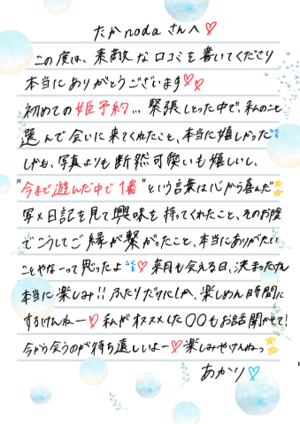 たかnodaさんへ♡
この度は、素敵な口コミを書いてくださり
本当にありがとうございます♡♡
初めての姫予約...緊張しとった中で、私のこと
選んで会いに来てくれたこと、本当に嬉しかった
しかも、写真よりも断然可愛いも嬉しいし、
"今まで遊んだ中で1番"という言葉は心から喜んだ
写メ日記を見て興味を持ってくれたこと、そのお陰
でこうしてご縁が繋がったこと、本当にありがたい
ことやなーって思ったよ♡来月も会える日、決まったけん
本当に楽しみ!!ふたりだけにしか、楽しめん時間に
するけんねー♡私がオススメした〇〇もお話聞かせて!
今から会うのが待ち遠しいよー♡楽しみやけんねっ
あかり♡